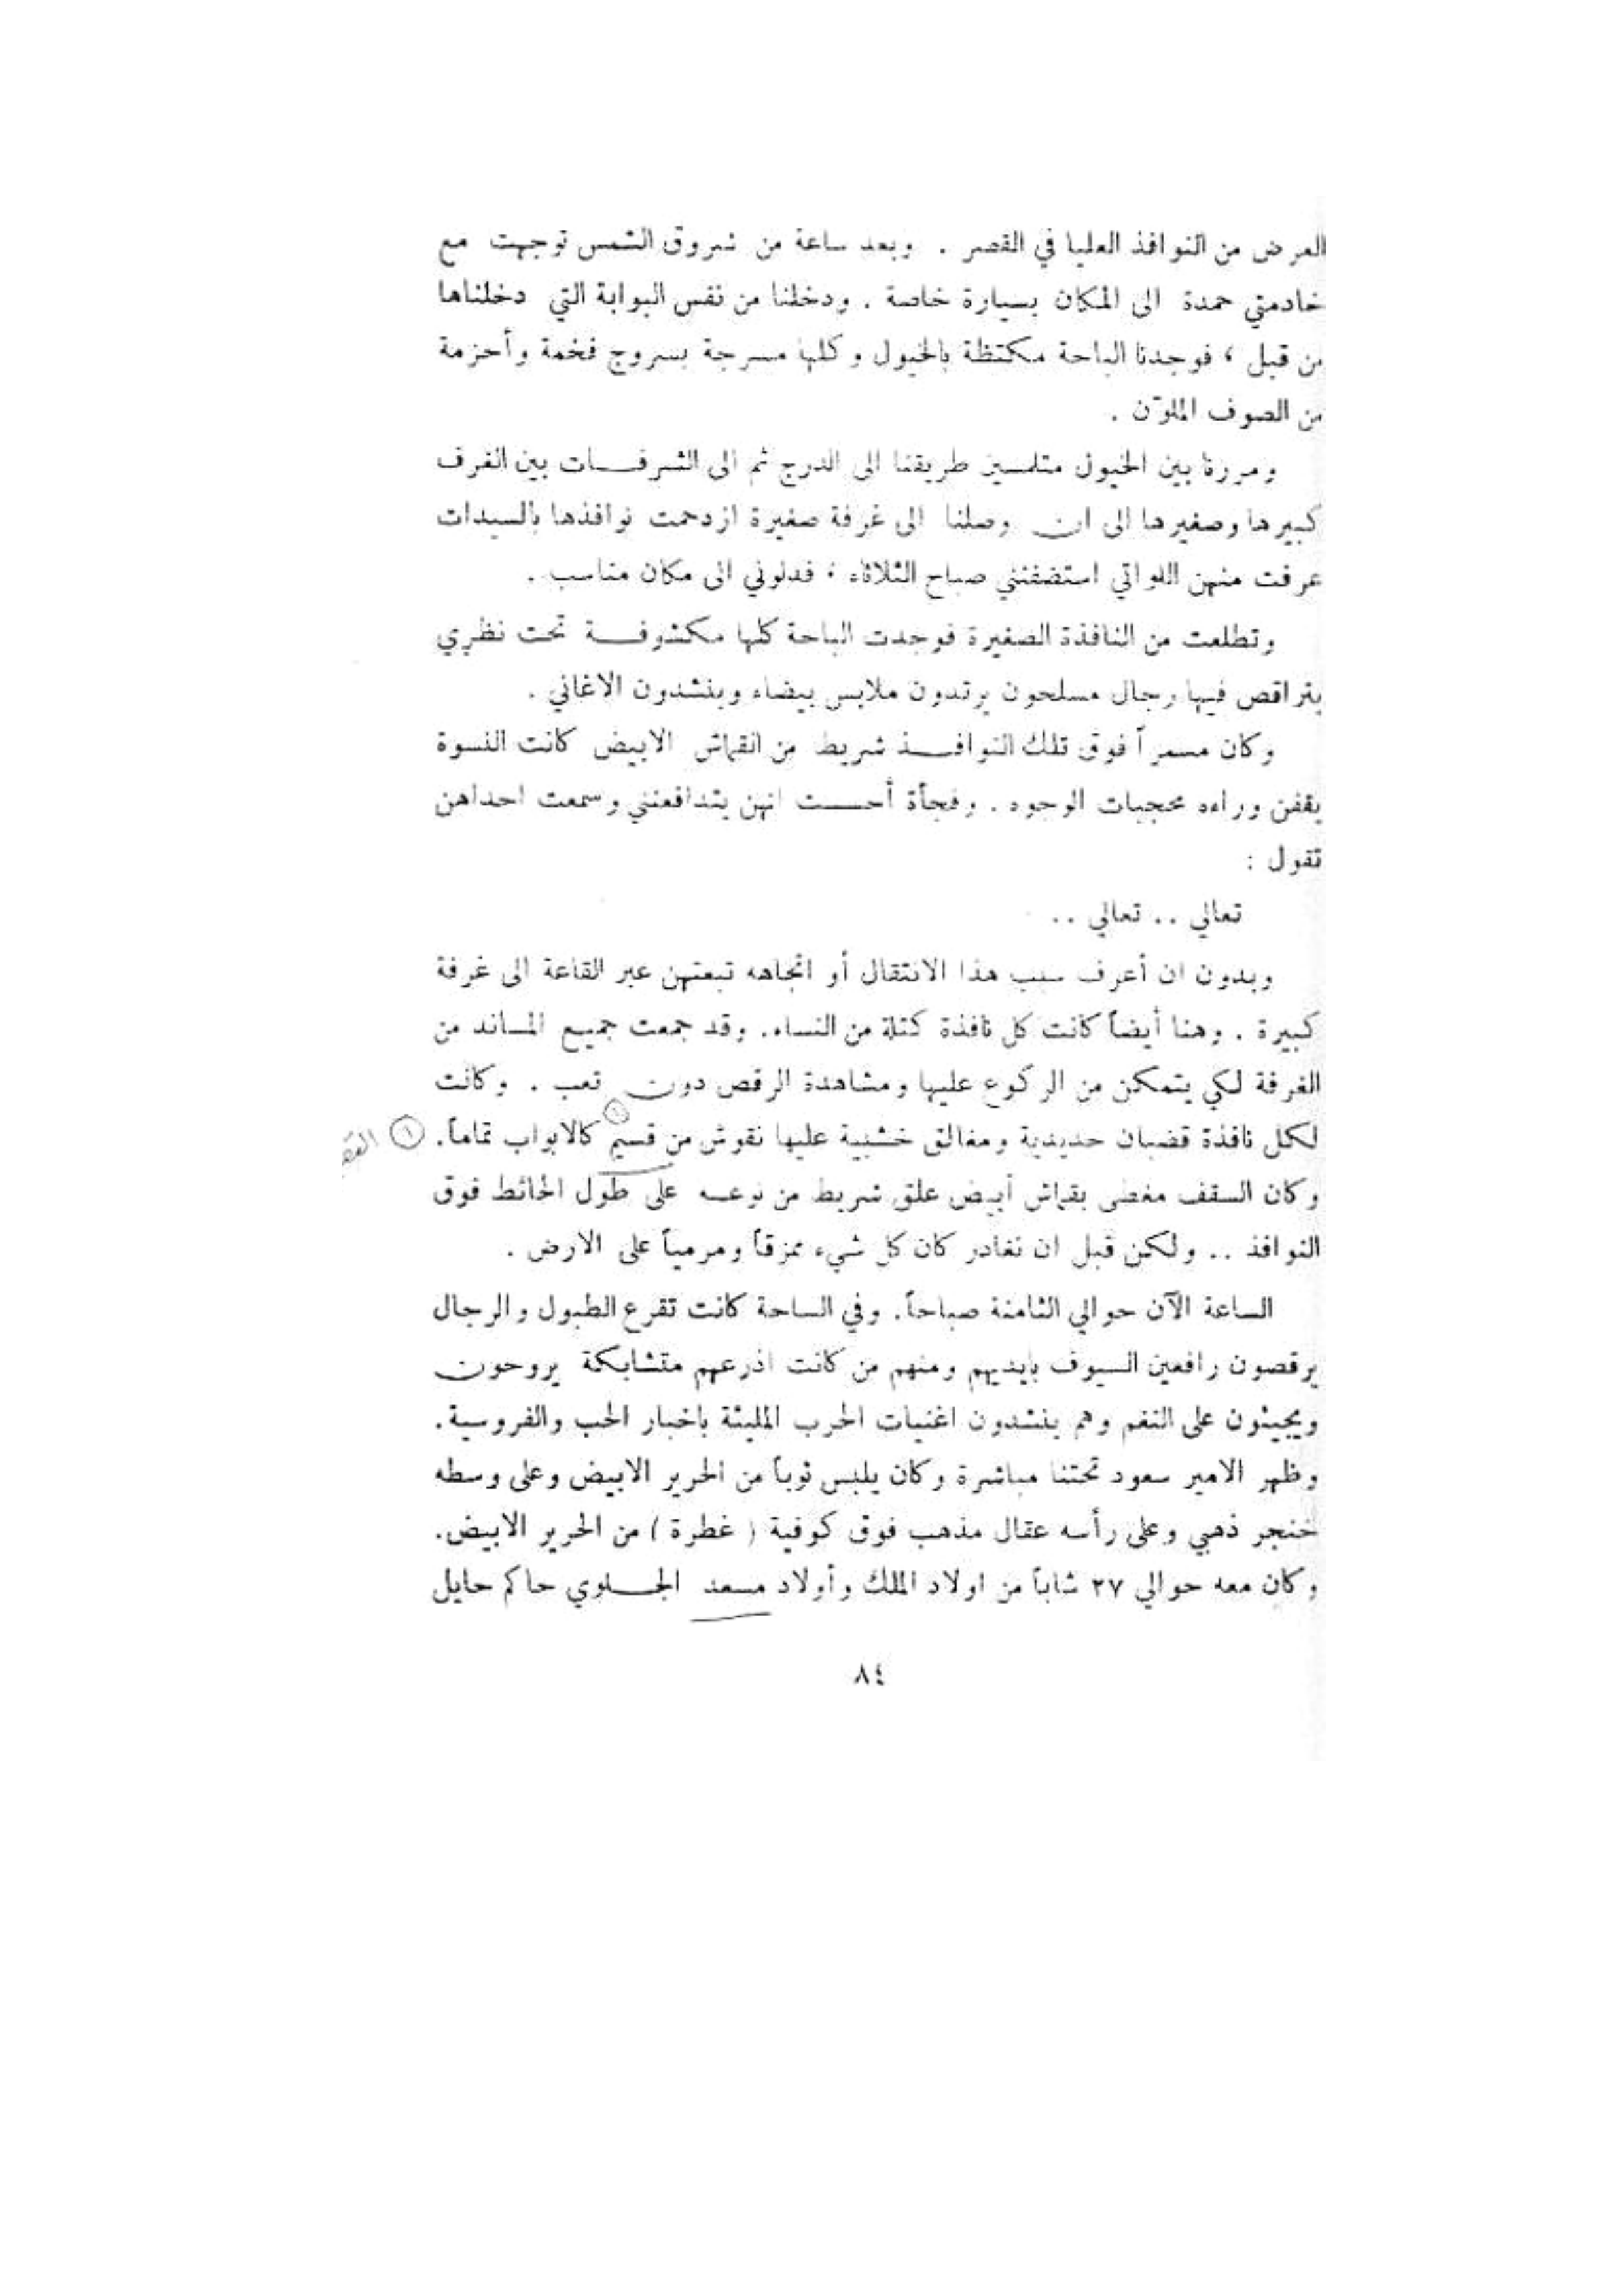 العرض من النوافذ العليا في القصر . وبعد ساعة من شروق الشمس توجهت مع
خادمتي حمدة الى المكان بسيارة خاصة . ودخلنا من نفس البوابة التي دخلناها
من قبل ، فوجدنا الباحة مكتظة بالخيول وكلها مسرجة بسروج فخمة وأحزمة
من الصوف الملوّن .
ومررنا بين الخيول متلمسين طريقنا الى الدرج ثم الى الشرفات بين الغرف
كبيرها وصغيرها الى ان وصلنا الى غرفة صغيرة ازدحمت نوافذها بالسيدات
عرفت منهن اللواتي استضفنني صباح الثلاثاء ، فدلوني الى مكان مناسب .
وتطلعت من النافذة الصغيرة فوجدت الباحة كلها مكشوفة تحت نظري
يتراقص فيها رجال مسلحون يرتدون ملابس بيضاء وينشدون الاغاني .
وكان مسمراً فوق تلك النوافذ شريط من القماش الابيض كانت النسوة
يقفن وراءه محجبات الوجوه . وفجأة أحسست انهن يتدافعنني وسمعت احداهن
تقول :
تعالي .. تعالي ..
وبدون ان أعرف سبب هذا الانتقال أو اتجاهه تبعتهن عبر القاعة الى غرفة
كبيرة . وهنا أيضاً كانت كل نافذة كتلة من النساء. وقد جمعت جميع المساند من
الغرفة لكي يتمكن من الركوع عليها ومشاهدة الرقص دون تعب . وكانت
لكل نافذة قضبان حديدية ومغالق خشبية عليها نقوش من قسيم ① كالابواب تماماً. ①
وكان السقف مغطى بقماش أبيض علق شريط من نوعه على طول الحائط فوق
النوافذ .. ولكن قبل ان نغادر كان كل شيء ممزقاً ومرمياً على الارض .
الساعة الآن حوالي الثامنة صباحاً. وفي الساحة كانت تقرع الطبول والرجال
يرقصون رافعين السيوف بأيديهم ومنهم من كانت اذرعهم متشابكة يروحون
ويجيئون على النغم وهم ينشدون اغنيات الحرب المليئة باخبار الحب والفروسية.
وظهر الامير سعود تحتنا مباشرة وكان يلبس ثوباً من الحرير الابيض وعلى وسطه
خنجر ذهبي وعلى رأسه عقال مذهب فوق كوفية ( غطرة ) من الحرير الابيض.
وكان معه حوالي ٢٧ شاباً من اولاد الملك وأولاد مسعد الجلوي حاكم حايل
٨٤